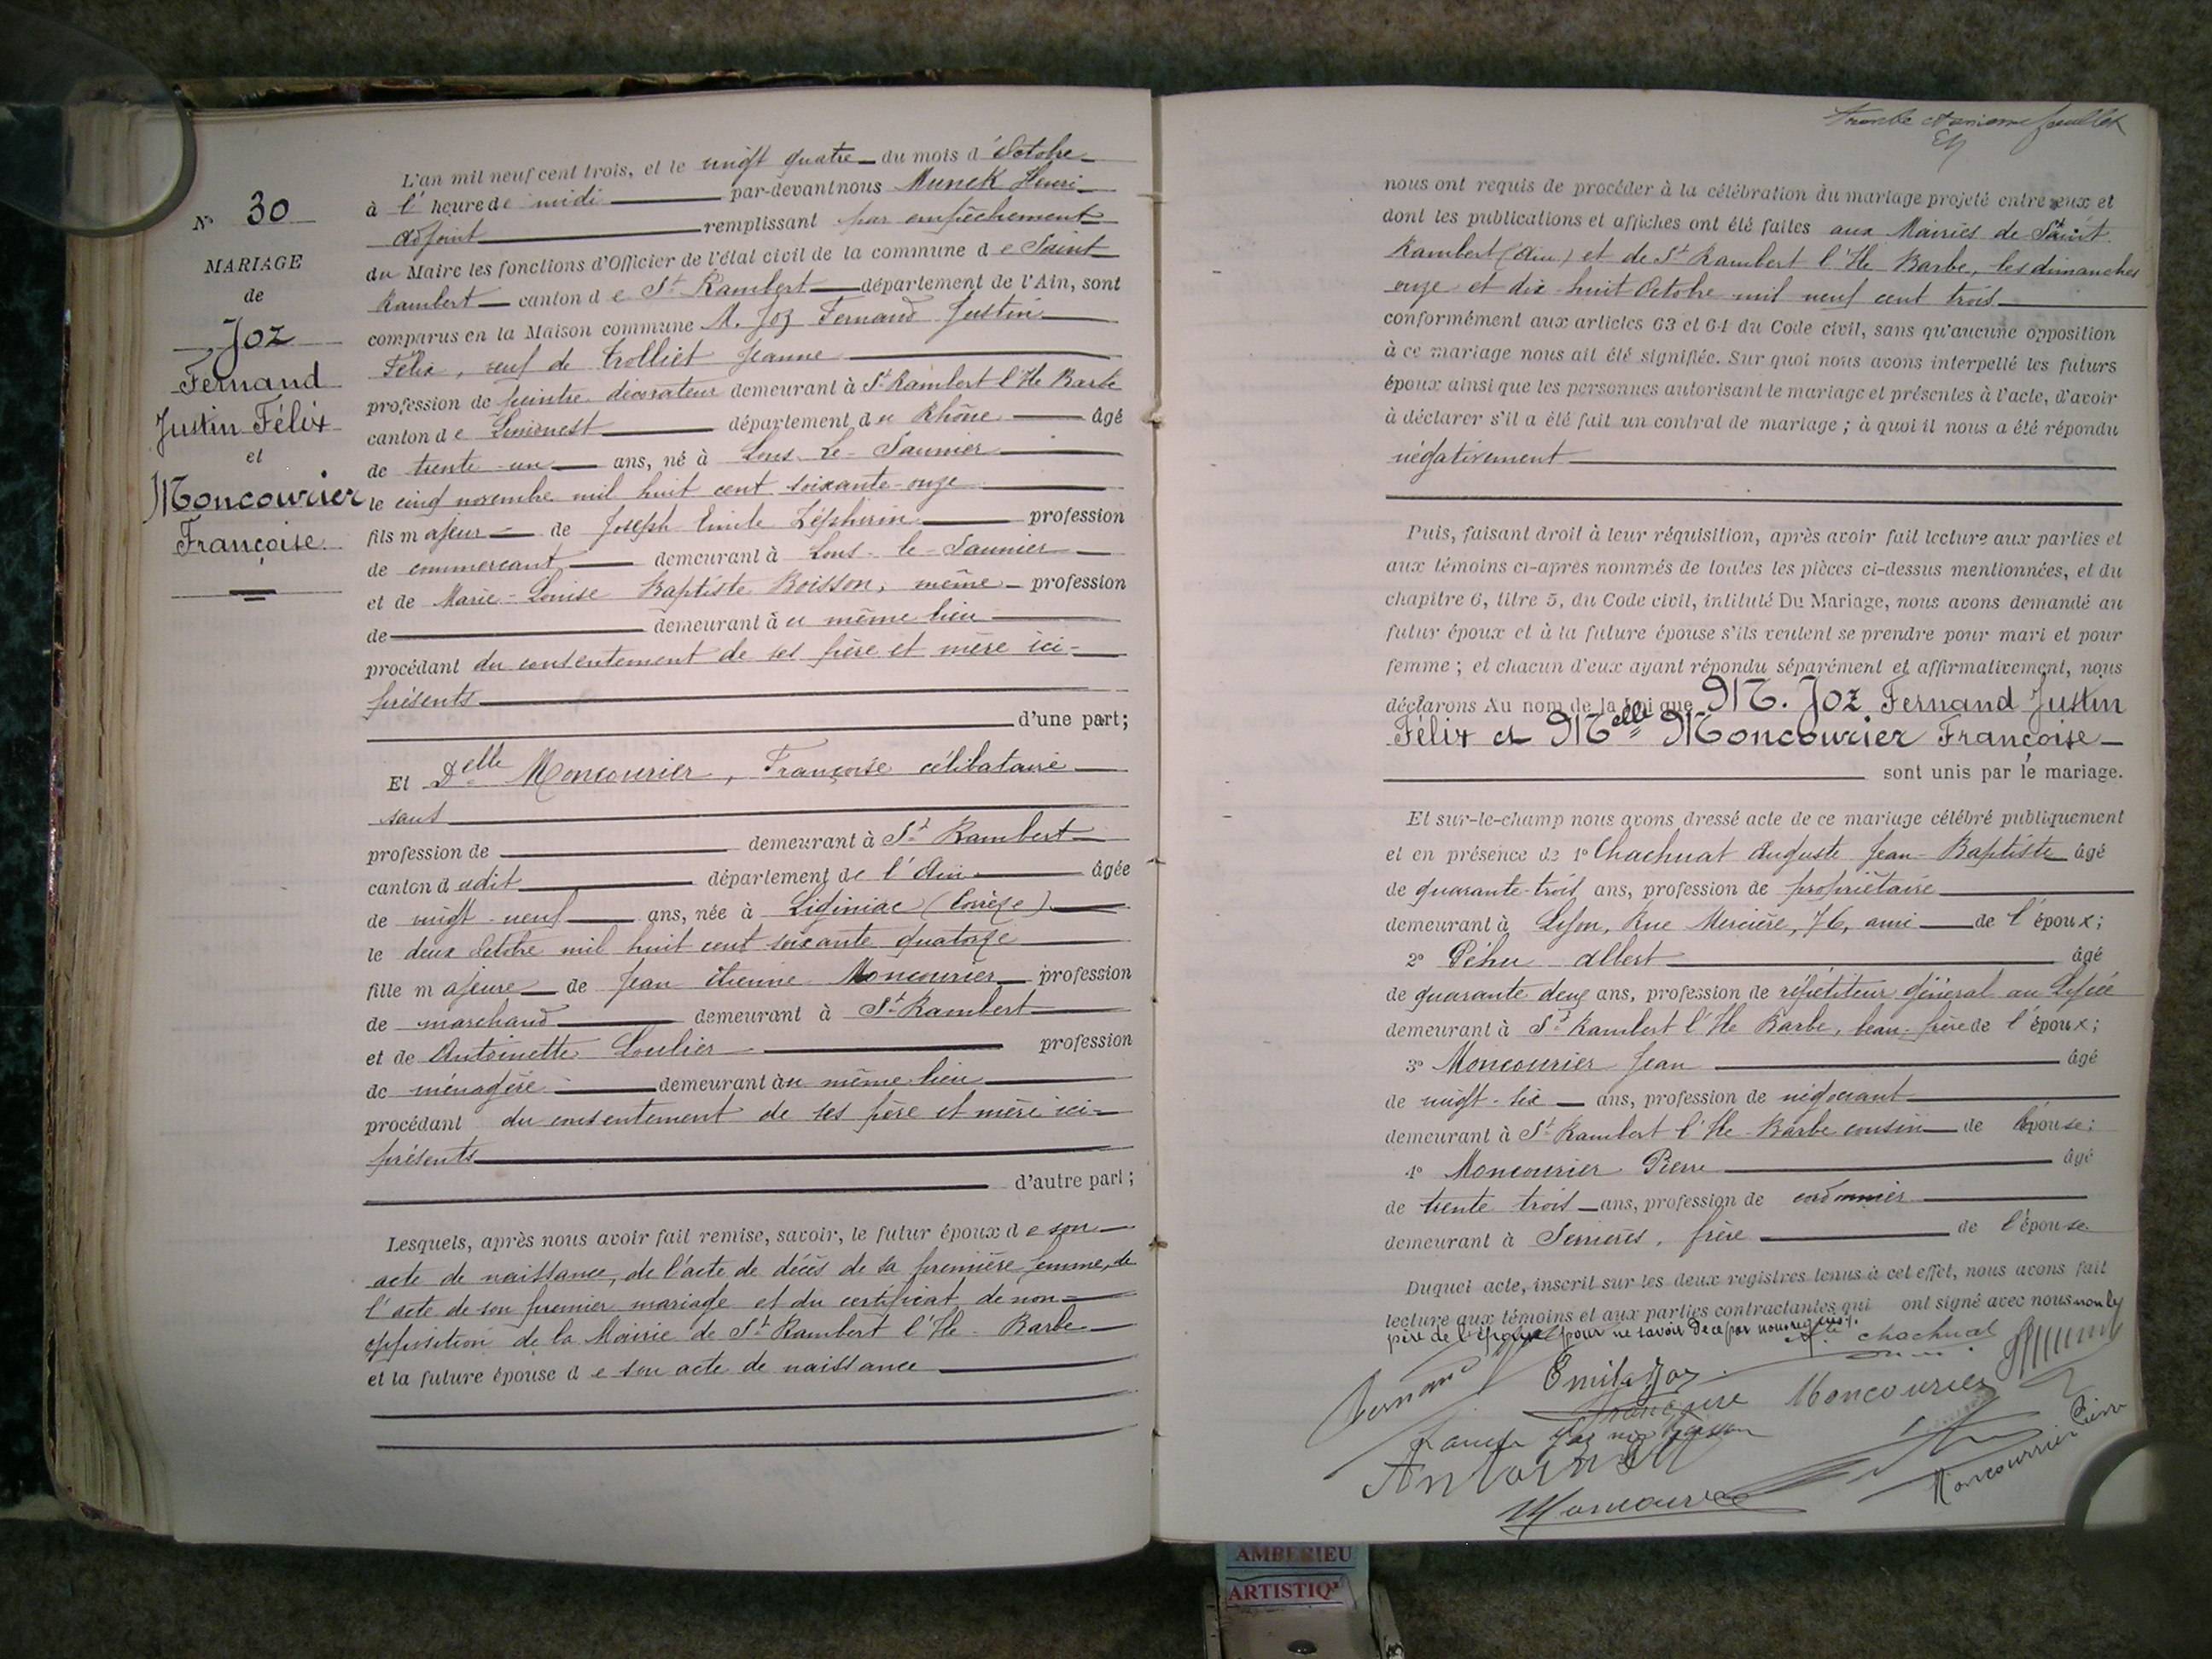 N° 30
MARIAGE
de
Joz
Fernand
Justin Félix
et
Moncourier
Françoise
L'an mil neuf cent trois, et le vingt quatre du mois d'Octobre
à l'heure de midi par-devant nous Munck Henri
adjoint remplissant par empêchement
du Maire les fonctions d'Officier de l'état civil de la commune de Saint
Rambert canton de St Rambert département de l'Ain, sont
comparus en la Maison commune M. Joz Fernand Justin
Félix, veuf de Trolliet Jeanne
profession de peintre décorateur demeurant à St Rambert l'Ile Barbe
canton de Limonest département du Rhône âgé
de trente-un ans, né à Lons-Le-Saunier
le cinq novembre mil huit cent soixante-onze
fils majeur de Joseph Emile Zéphirin profession
de commerçant demeurant à Lons-le-Saunier
et de Marie-Louise Baptiste Boisson, même profession
de demeurant à u même lieu
procédant du consentement de ses père et mère ici-
présents
d'une part;
Et Delle Moncourier, Françoise célibataire
sans
profession de demeurant à St Rambert
canton dudit département de l'Ain âgée
de vingt-neuf ans, née à Liginiac (Corrèze)
le deux Octobre mil huit cent soixante quatorze
fille majeure de Jean Etienne Moncourier profession
de marchand demeurant à St Rambert
et de Antoinette Loulier profession
de ménagère demeurant àu même lieu
procédant du consentement de ses père et mère ici-
présents
d'autre part;
Lesquels, après nous avoir fait remise, savoir, le futur époux de son
acte de naissance, de l'acte de décès de sa première femme, de
l'acte de son premier mariage et du certificat de non-
opposition de la Mairie de St Rambert l'Ile-Barbe
et la future épouse de son acte de naissance
trente et onzième feuillet
nous ont requis de procéder à la célébration du mariage projeté entre eux et
dont les publications et affiches ont été faites aux Mairies de Saint
Rambert (Ain) et de St Rambert l'Ile Barbe, les dimanches
onze et dix-huit Octobre mil neuf cent trois
conformément aux articles 63 et 64 du Code civil, sans qu'aucune opposition
à ce mariage nous ait été signifiée. Sur quoi nous avons interpellé les futurs
époux ainsi que les personnes autorisant le mariage et présentes à l'acte, d'avoir
à déclarer s'il a été fait un contrat de mariage; à quoi il nous a été répondu
négativement
Puis, faisant droit à leur réquisition, après avoir fait lecture aux parties et
aux témoins ci-après nommés de toutes les pièces ci-dessus mentionnées, et du
chapitre 6, titre 5, du Code civil, intitulé Du Mariage, nous avons demandé au
futur époux et à la future épouse s'ils veulent se prendre pour mari et pour
femme; et chacun d'eux ayant répondu séparément et affirmativement, nous
déclarons Au nom de la loi que M. Joz Fernand Justin
Félix et Melle Moncourier Françoise
sont unis par le mariage.
Et sur-le-champ nous avons dressé acte de ce mariage célébré publiquement
et en présence de 1° Chachuat Auguste Jean-Baptiste âgé
de quarante-trois ans, profession de propriétaire
demeurant à Lyon, Rue Mercière, 76, ami de l'époux;
2° Péhu Albert âgé
de quarante deux ans, profession de répétiteur général au Lycée
demeurant à St Rambert l'Ile Barbe, beau-frère de l'époux;
3° Moncourier Jean âgé
de vingt-six ans, profession de négociant
demeurant à St Rambert l'Ile-Barbe cousin de l'épouse;
4° Moncourier Pierre âgé
de trente trois ans, profession de cordonnier
demeurant à Serrières, frère de l'épouse
Duquel acte, inscrit sur les deux registres tenus à cet effet, nous avons fait
lecture aux témoins et aux parties contractantes qui ont signé avec nous non le
père de l'épouse pour ne savoir de ce par nous requis.
chachuat
Fernand Emile Joz
Françoise Moncourier
Joz née Boisson
Antoinette
Moncourier Pierre
Moncourier
AMBERIEU
ARTISTIQ